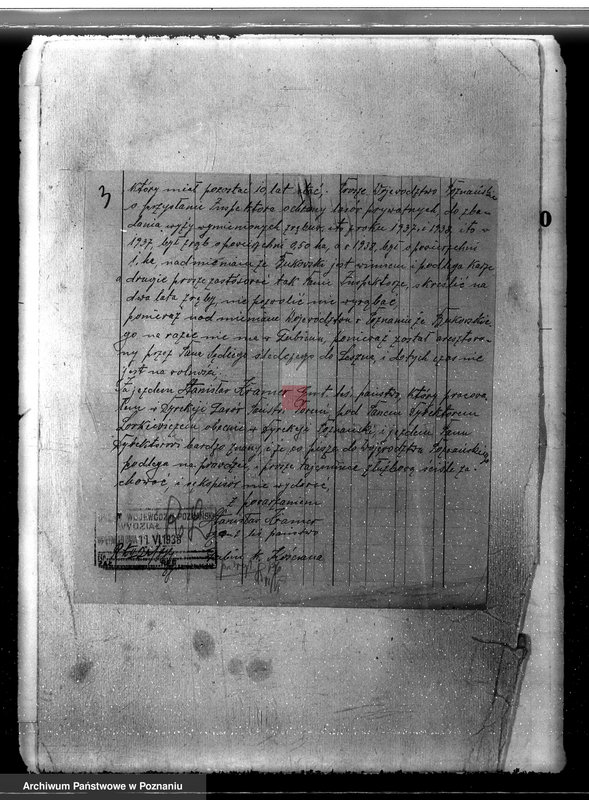 3
który miał pozostać 10 lat stać. Proszę Województwo Poznańskie
o przysłanie Inspektora ochrony lasów prywatnych, do zba-
dania wyży wymienionych zrębów, i to z roku 1937 i 1938, i to w
1937, był zrąb o powierzchni 0,50 ha, a w 1938, był o powierzchni
1, ha, nadmieniam że Bukowski jest winnem i podlega karze
drugie proszę zastosować tak Panu Inspektorze, skreślić na
dwa lata zręby, nie pozwolić nie wyrąbać,
ponieraż nadmieniam Województwu w Poznaniu że Bukowskie-
go na razie nie ma w Lubiniu, ponieraż został aresztowa-
ny przez Pana Sędziego śledczego do Leszna, i do tych czas nie
jest na wolności.
Ja jezdem Stanisław Kramer Emt. leś. państw. który pracowa-
łem w Dyrekcji Lasów Państw. Toruń pod Panem Dyrektorem
Lorkiewiczem obecnie w Dyrekcji Poznański, i jezdem Panu
Dyrektorowi bardzo znany, i że co piszę do Województwa Poznańskiego
podlega na prawdzie, i proszę tajemnicę służbową ściśle za-
chować i
nie wydawać,
z poważaniem
Stanisław Kramer
Emt. leś. państw.
Lubiń p. Kościana
WOJEWÓDZKI POZNAŃSKI
WYDZIAŁ
11 VI 1938
0
Archiwum Państwowe w Poznaniu